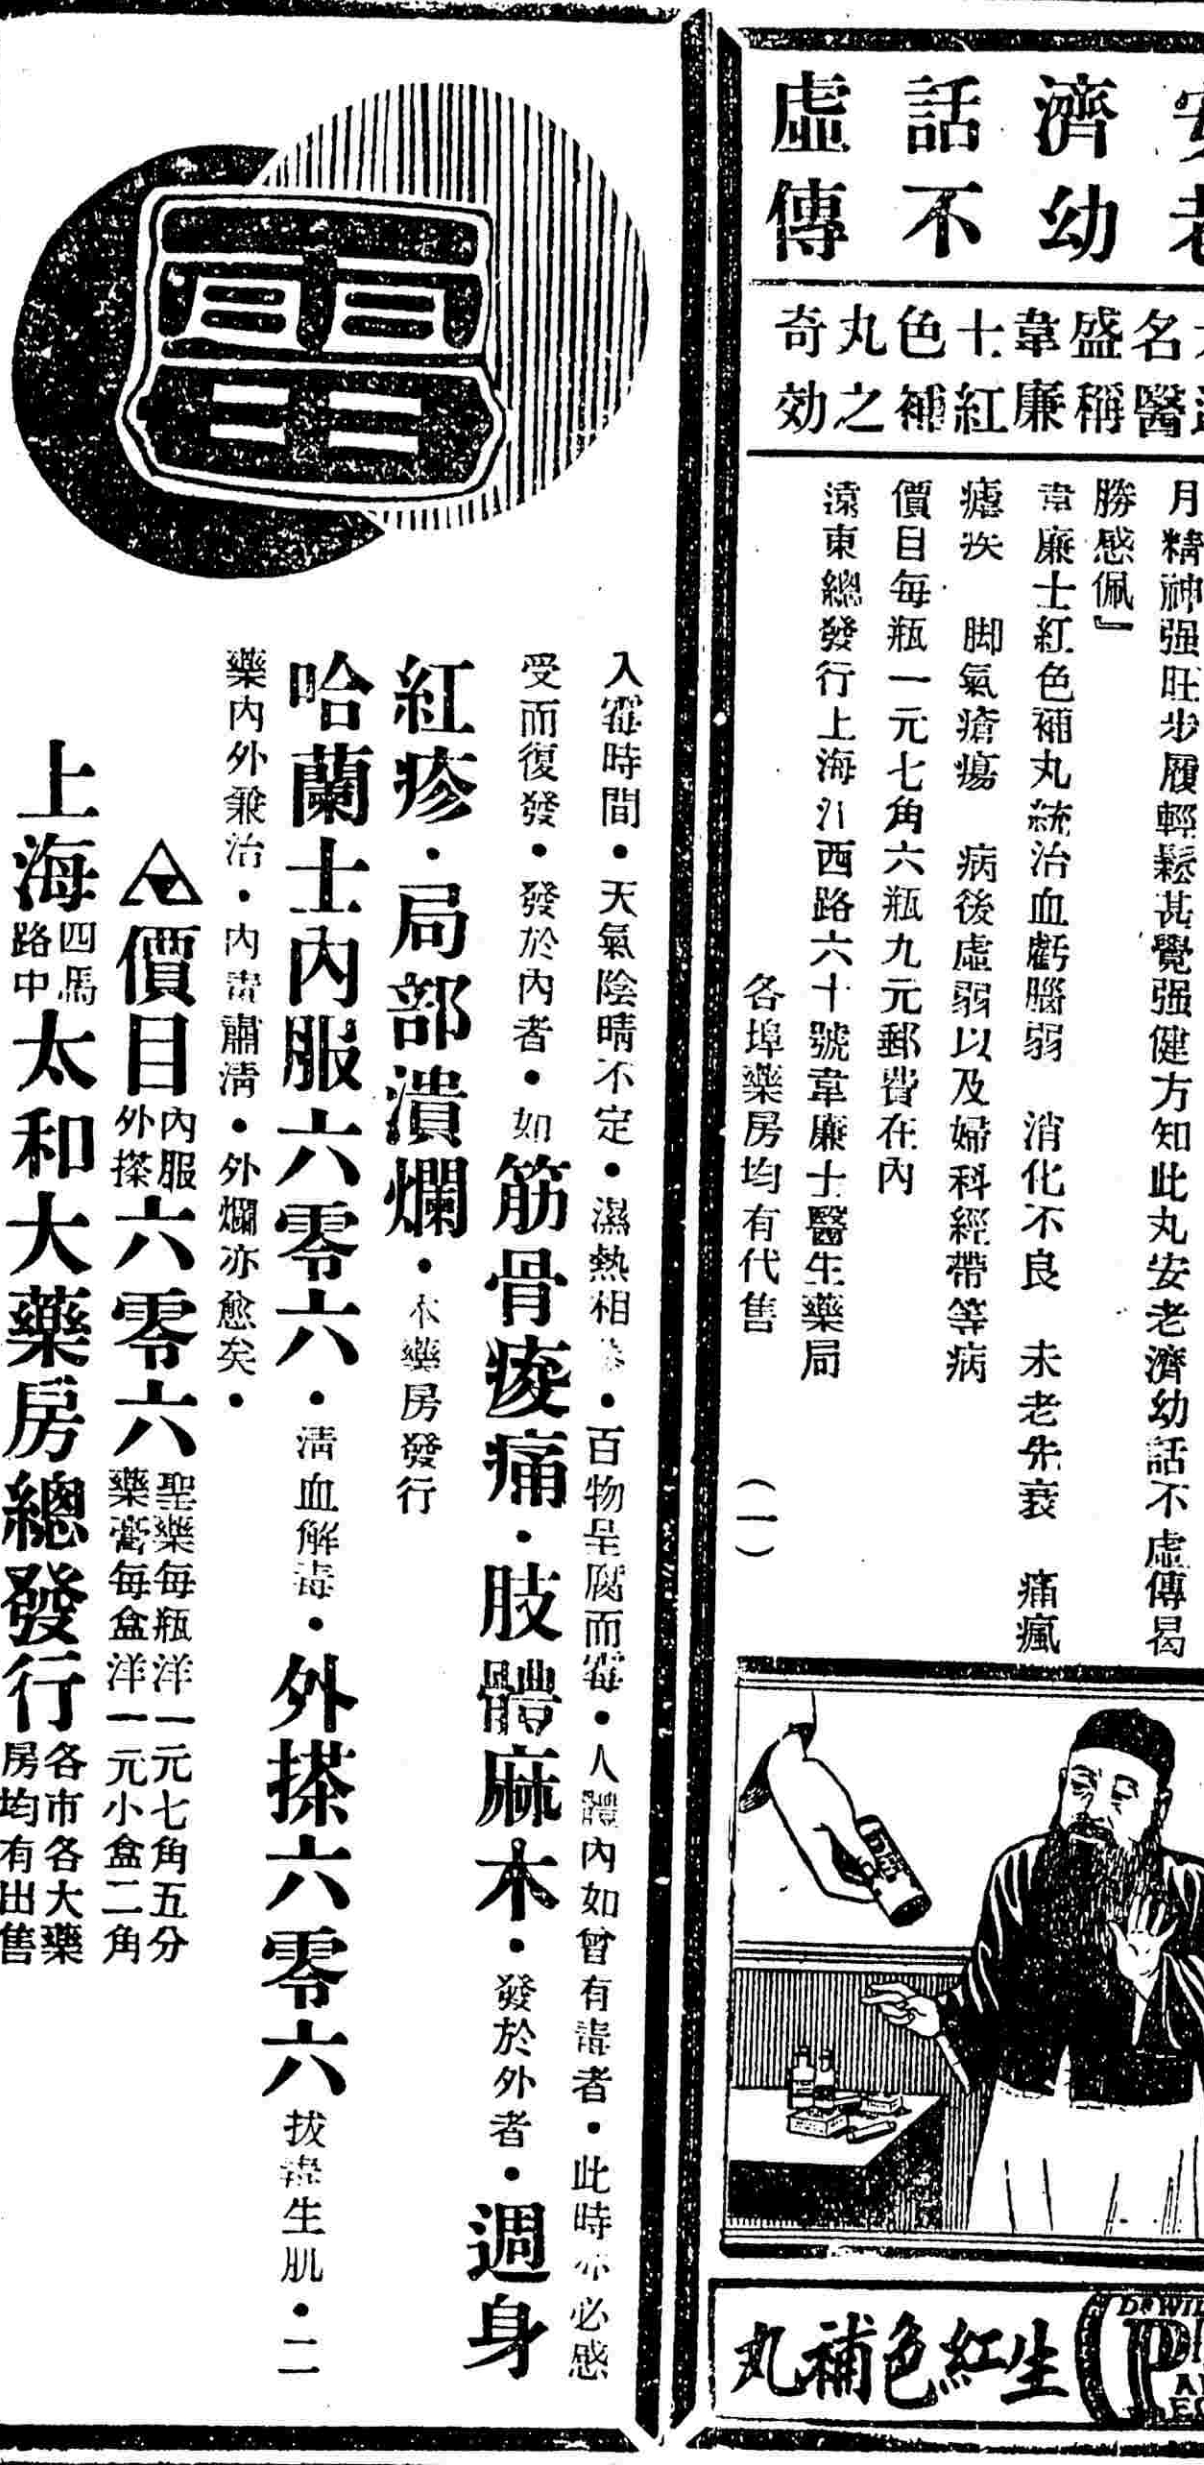 濟幼
話不
虛傳
名醫
盛稱
韋廉
士紅
色補
丸之
奇効
月精神强旺步履輕鬆甚覺强健方知此丸安老濟幼話不虛傳曷
勝感佩』
韋廉士紅色補丸統治血虧腦弱 消化不良 未老先衰 痛瘋
瘧疾 脚氣瘡瘍 病後虛弱以及婦科經帶等病
價目每瓶一元七角六瓶九元郵費在內
遠東總發行上海江西路六十號韋廉士醫生藥局
各埠藥房均有代售 (一)
生紅色補丸
入霉時間・天氣陰晴不定・濕熱相・百物呈腐而霉・人體內如曾有毒者・此時亦必感
受而復發・發於內者・如筋骨痠痛・肢體麻木・發於外者・週身
紅疹・局部潰爛・本藥房發行
哈蘭士內服六零六・清血解毒・外搽六零六拔毒生肌・二
藥內外兼治・內毒肅清・外爛亦愈矣・
價目內服外搽六零六聖藥每瓶洋一元七角五分藥膏每盒洋一元小盒二角
上海四馬路中太和大藥房總發行各市各大藥房均有出售